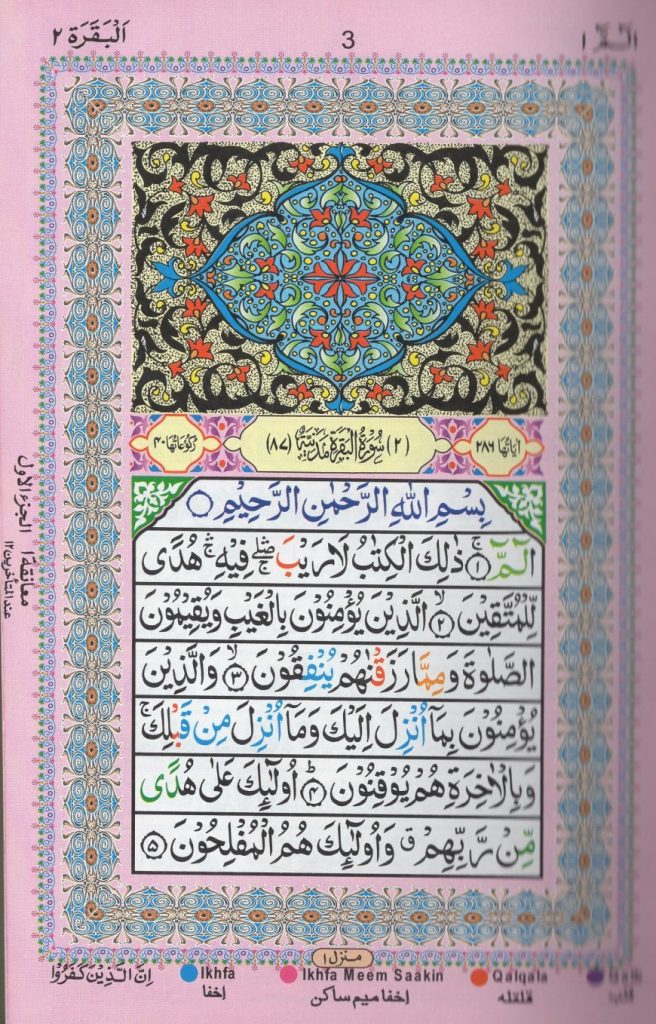 الٓمّٓ ١ 3 اَلْبَقَرَة ٢
اٰیاتها ٢٨٦ (٢) سُوْرَةُ الْبَقَرَةِ مَدَنِيَّةٌ (٨٧) رکوعاتها ٤٠
بِسْمِ اللّٰهِ الرَّحْمٰنِ الرَّحِيْمِ
الٓمّٓ ۚ ١ ذٰلِكَ الْكِتٰبُ لَا رَيْبَ ۛۖ فِيْهِ ۛۚ هُدًى
لِّلْمُتَّقِيْنَ ۙ ٢ الَّذِيْنَ يُؤْمِنُوْنَ بِالْغَيْبِ وَيُقِيْمُوْنَ
الصَّلٰوةَ وَمِمَّا رَزَقْنٰهُمْ يُنْفِقُوْنَ ۙ ٣ وَالَّذِيْنَ
يُؤْمِنُوْنَ بِمَآ اُنْزِلَ اِلَيْكَ وَمَآ اُنْزِلَ مِنْ قَبْلِكَ ۚ
وَبِالْاٰخِرَةِ هُمْ يُوْقِنُوْنَ ؕ ٤ اُولٰٓئِكَ عَلٰى هُدًى
مِّنْ رَّبِّهِمْ ۗ وَاُولٰٓئِكَ هُمُ الْمُفْلِحُوْنَ ٥
معانقة ١ الجزء الاول
عند المتأخرين ١٢
منزل ١
اِنَّ الَّذِيْنَ كَفَرُوْا Ikhfa Ikhfa Meem Saakin Qalqala
اخفا اخفا میم ساکن قلقله قلب